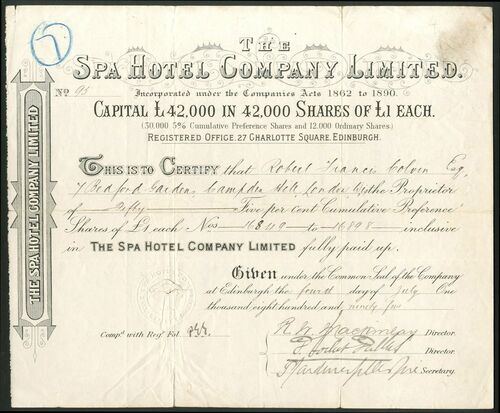 THE
SPA HOTEL COMPANY LIMITED.
No 95
Incorporated under the Companies Acts 1862 to 1890.
CAPITAL £42,000 IN 42,000 SHARES OF £1 EACH.
(30,000 5% Cumulative Preference Shares and 12,000 Ordinary Shares.)
REGISTERED OFFICE, 27 CHARLOTTE SQUARE, EDINBURGH.
THIS IS TO CERTIFY that Robert Francis Colvin Esq
7 Bedford Gardens Campden Hill London is the Proprietor
of Fifty Five per cent Cumulative Preference
Shares of £1 each Nos 16849 to 16898 inclusive
in THE SPA HOTEL COMPANY LIMITED fully paid up.
Given under the Common Seal of the Company
at Edinburgh the fourth day of July One
thousand eight hundred and ninety five
Director.
Compd. with Regr. Fol.
Director.
Secretary.
THE SPA HOTEL COMPANY LIMITED